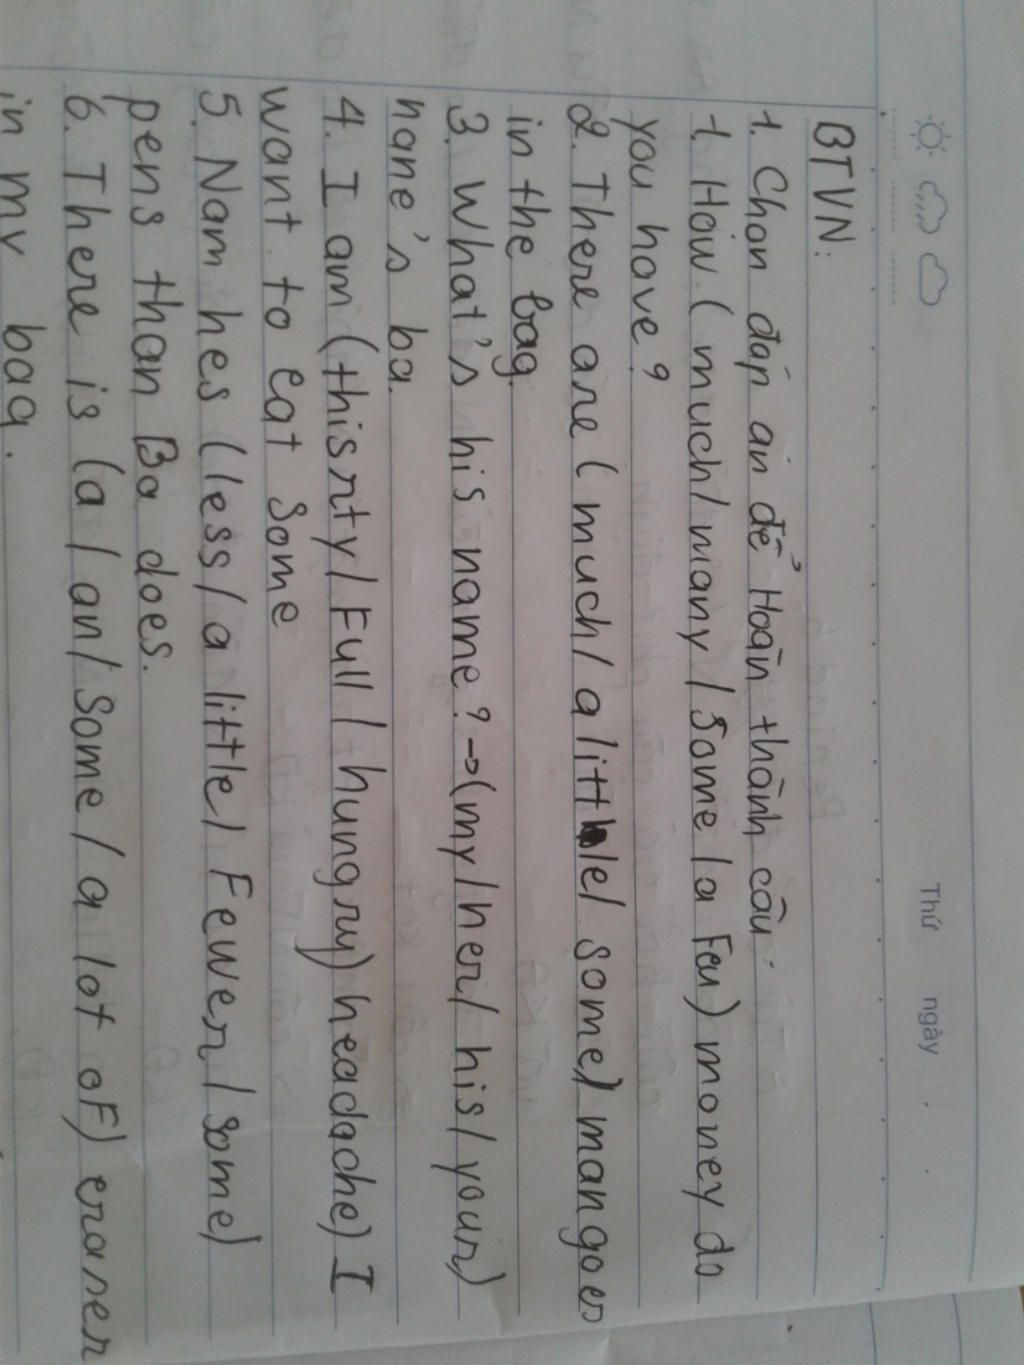 Thứ ngày
BTVN:
1. Chọn đáp án để Hoàn thành câu.
1. How (much/many/Some/a Few) money do
you have?
2. There are (much/a little/some) mangoes
in the bag.
3. What's his name? → (my/her/his/your)
name's ba.
4. I am (thisrty/Full/hungry) headache) I
want to eat some
5. Nam hes (less/a little/Fewer/some)
pens than Ba does.
6. There is (a/an/Some/a lot oF) eraser
in my bag.